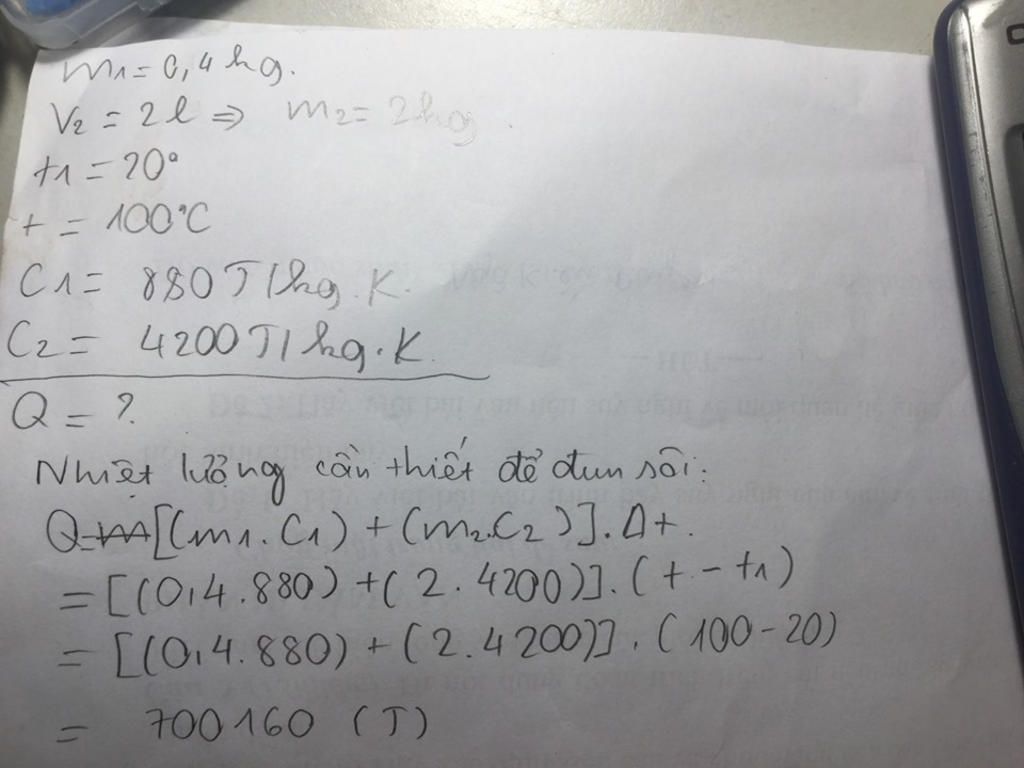 m1 = 0,4 kg.
V2 = 2l => m2 = 2kg
t1 = 20°
t = 100°C
C1 = 880 J/kg.K.
C2 = 4200 J/kg.K.
Q = ?
Nhiệt lượng cần thiết để đun sôi:
Q = [(m1.C1) + (m2.C2)].Δt.
= [(0,4.880) + (2.4200)].(t - t1)
= [(0,4.880) + (2.4200)].(100-20)
= 700160 (J)